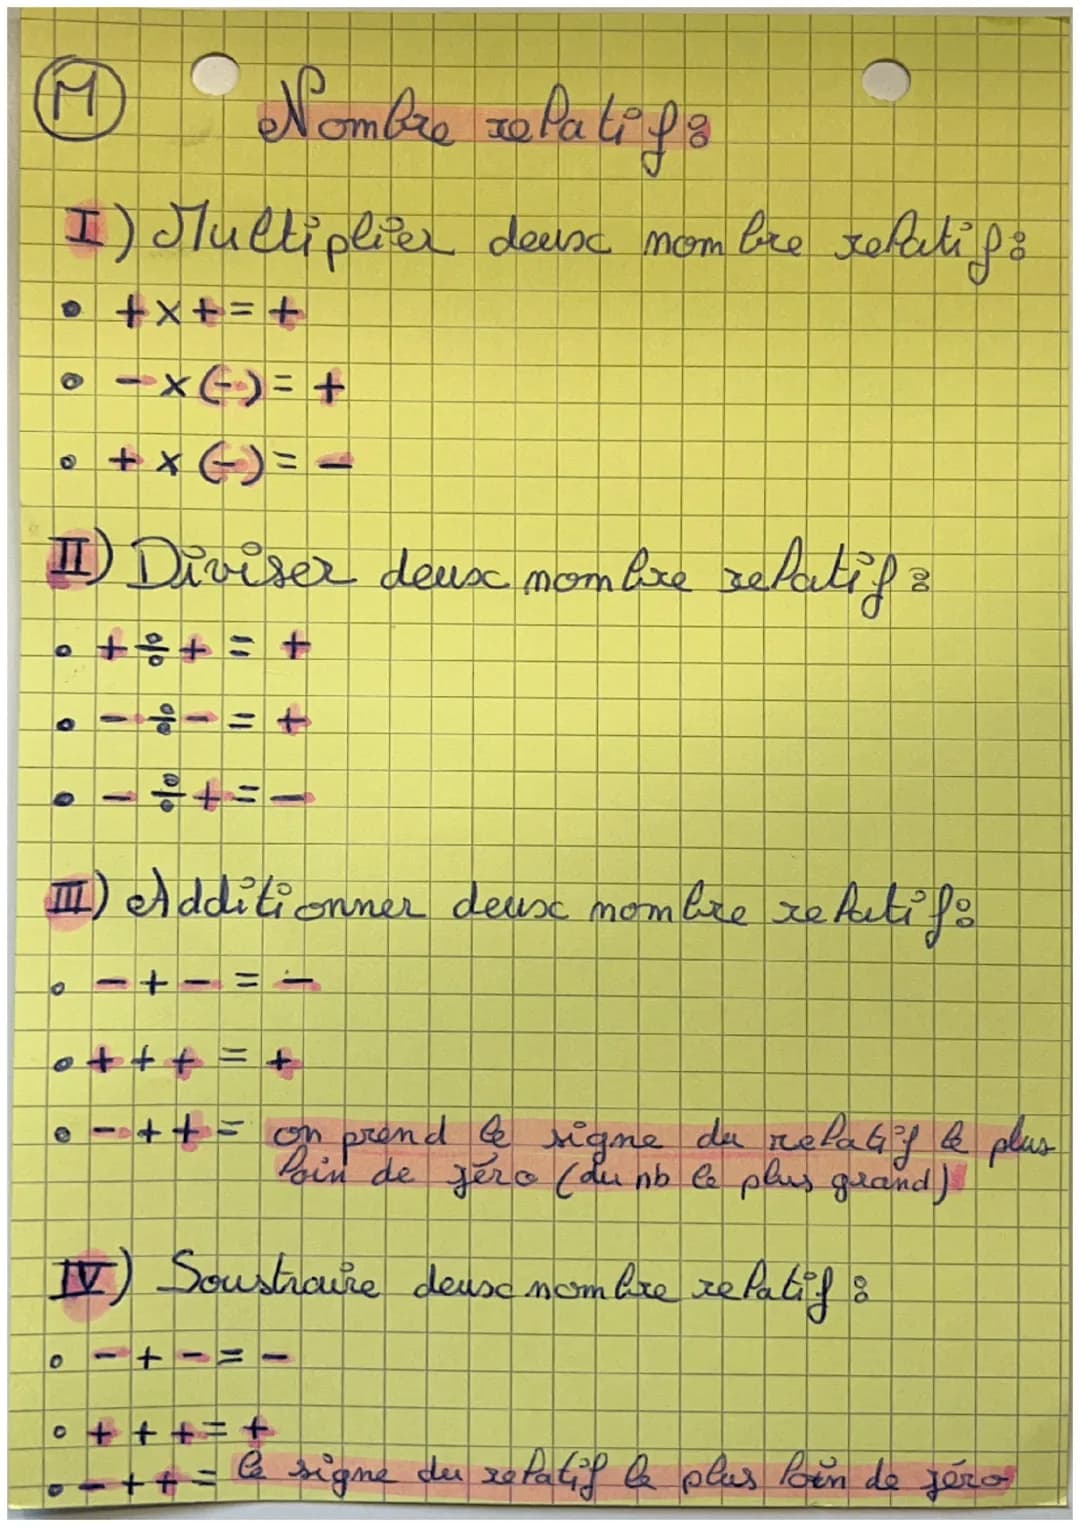 M
Nombre relatif:
I) Multiplier deux nombre relatif:
• + x + = +
• - x (-) = +
• + x (-) = -
II) Diviser deux nombre relatif:
• + ÷ + = +
• - ÷ - = +
• - ÷ + = -
III) Additionner deux nombre relatif:
• - + - = -
• + + + = +
• - + + = on prend le signe du relatif le plus
loin de zéro (du nb le plus grand)
IV) Soustraire deux nombre relatif:
• - + - = -
• + + + = +
• - + + = le signe du relatif le plus loin de zéro